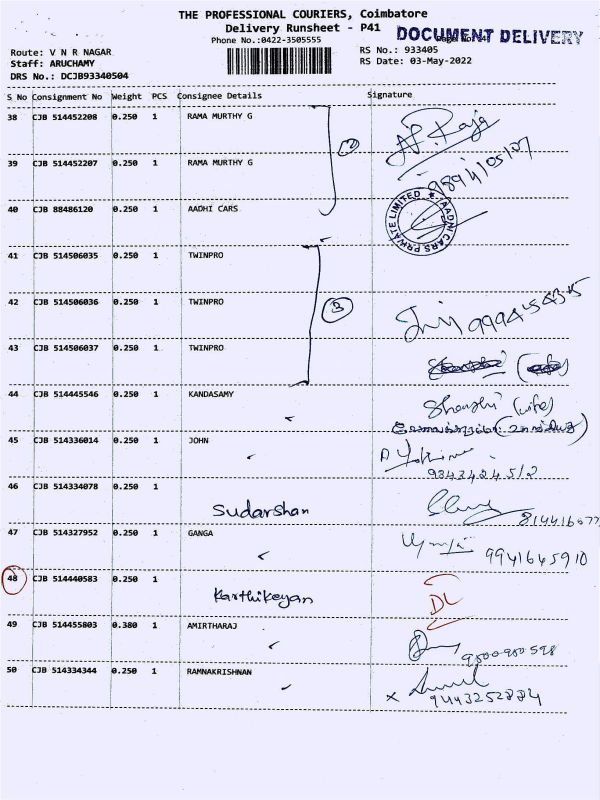 THE PROFESSIONAL COURIERS, Coimbatore
Delivery Runsheet - P41
DOCUMENT DELIVERY
Phone No.:0422-3505555
Route: V N R NAGAR
RS No.: 933405
Staff: ARUCHAMY
RS Date: 03-May-2022
DRS No.: DCJB93340504
S No Consignment No Weight PCS Consignee Details Signature
38 CJB 514452208 0.250 1 RAMA MURTHY G
39 CJB 514452207 0.250 1 RAMA MURTHY G
2
40 CJB 88486120 0.250 1 AADHI CARS
AADHI CARS PRIVATE LIMITED
41 CJB 514506035 0.250 1 TWINPRO
42 CJB 514506036 0.250 1 TWINPRO
3
43 CJB 514506037 0.250 1 TWINPRO
44 CJB 514445546 0.250 1 KANDASAMY
(wife)
45 CJB 514336014 0.250 1 JOHN
46 CJB 514334078 0.250 1
Sudarshan
47 CJB 514327952 0.250 1 GANGA
9941645910
48 CJB 514440583 0.250 1
Karthikeyan
DL
49 CJB 514455803 0.380 1 AMIRTHARAJ
50 CJB 514334344 0.250 1 RAMNAKRISHNAN
x
9443252884